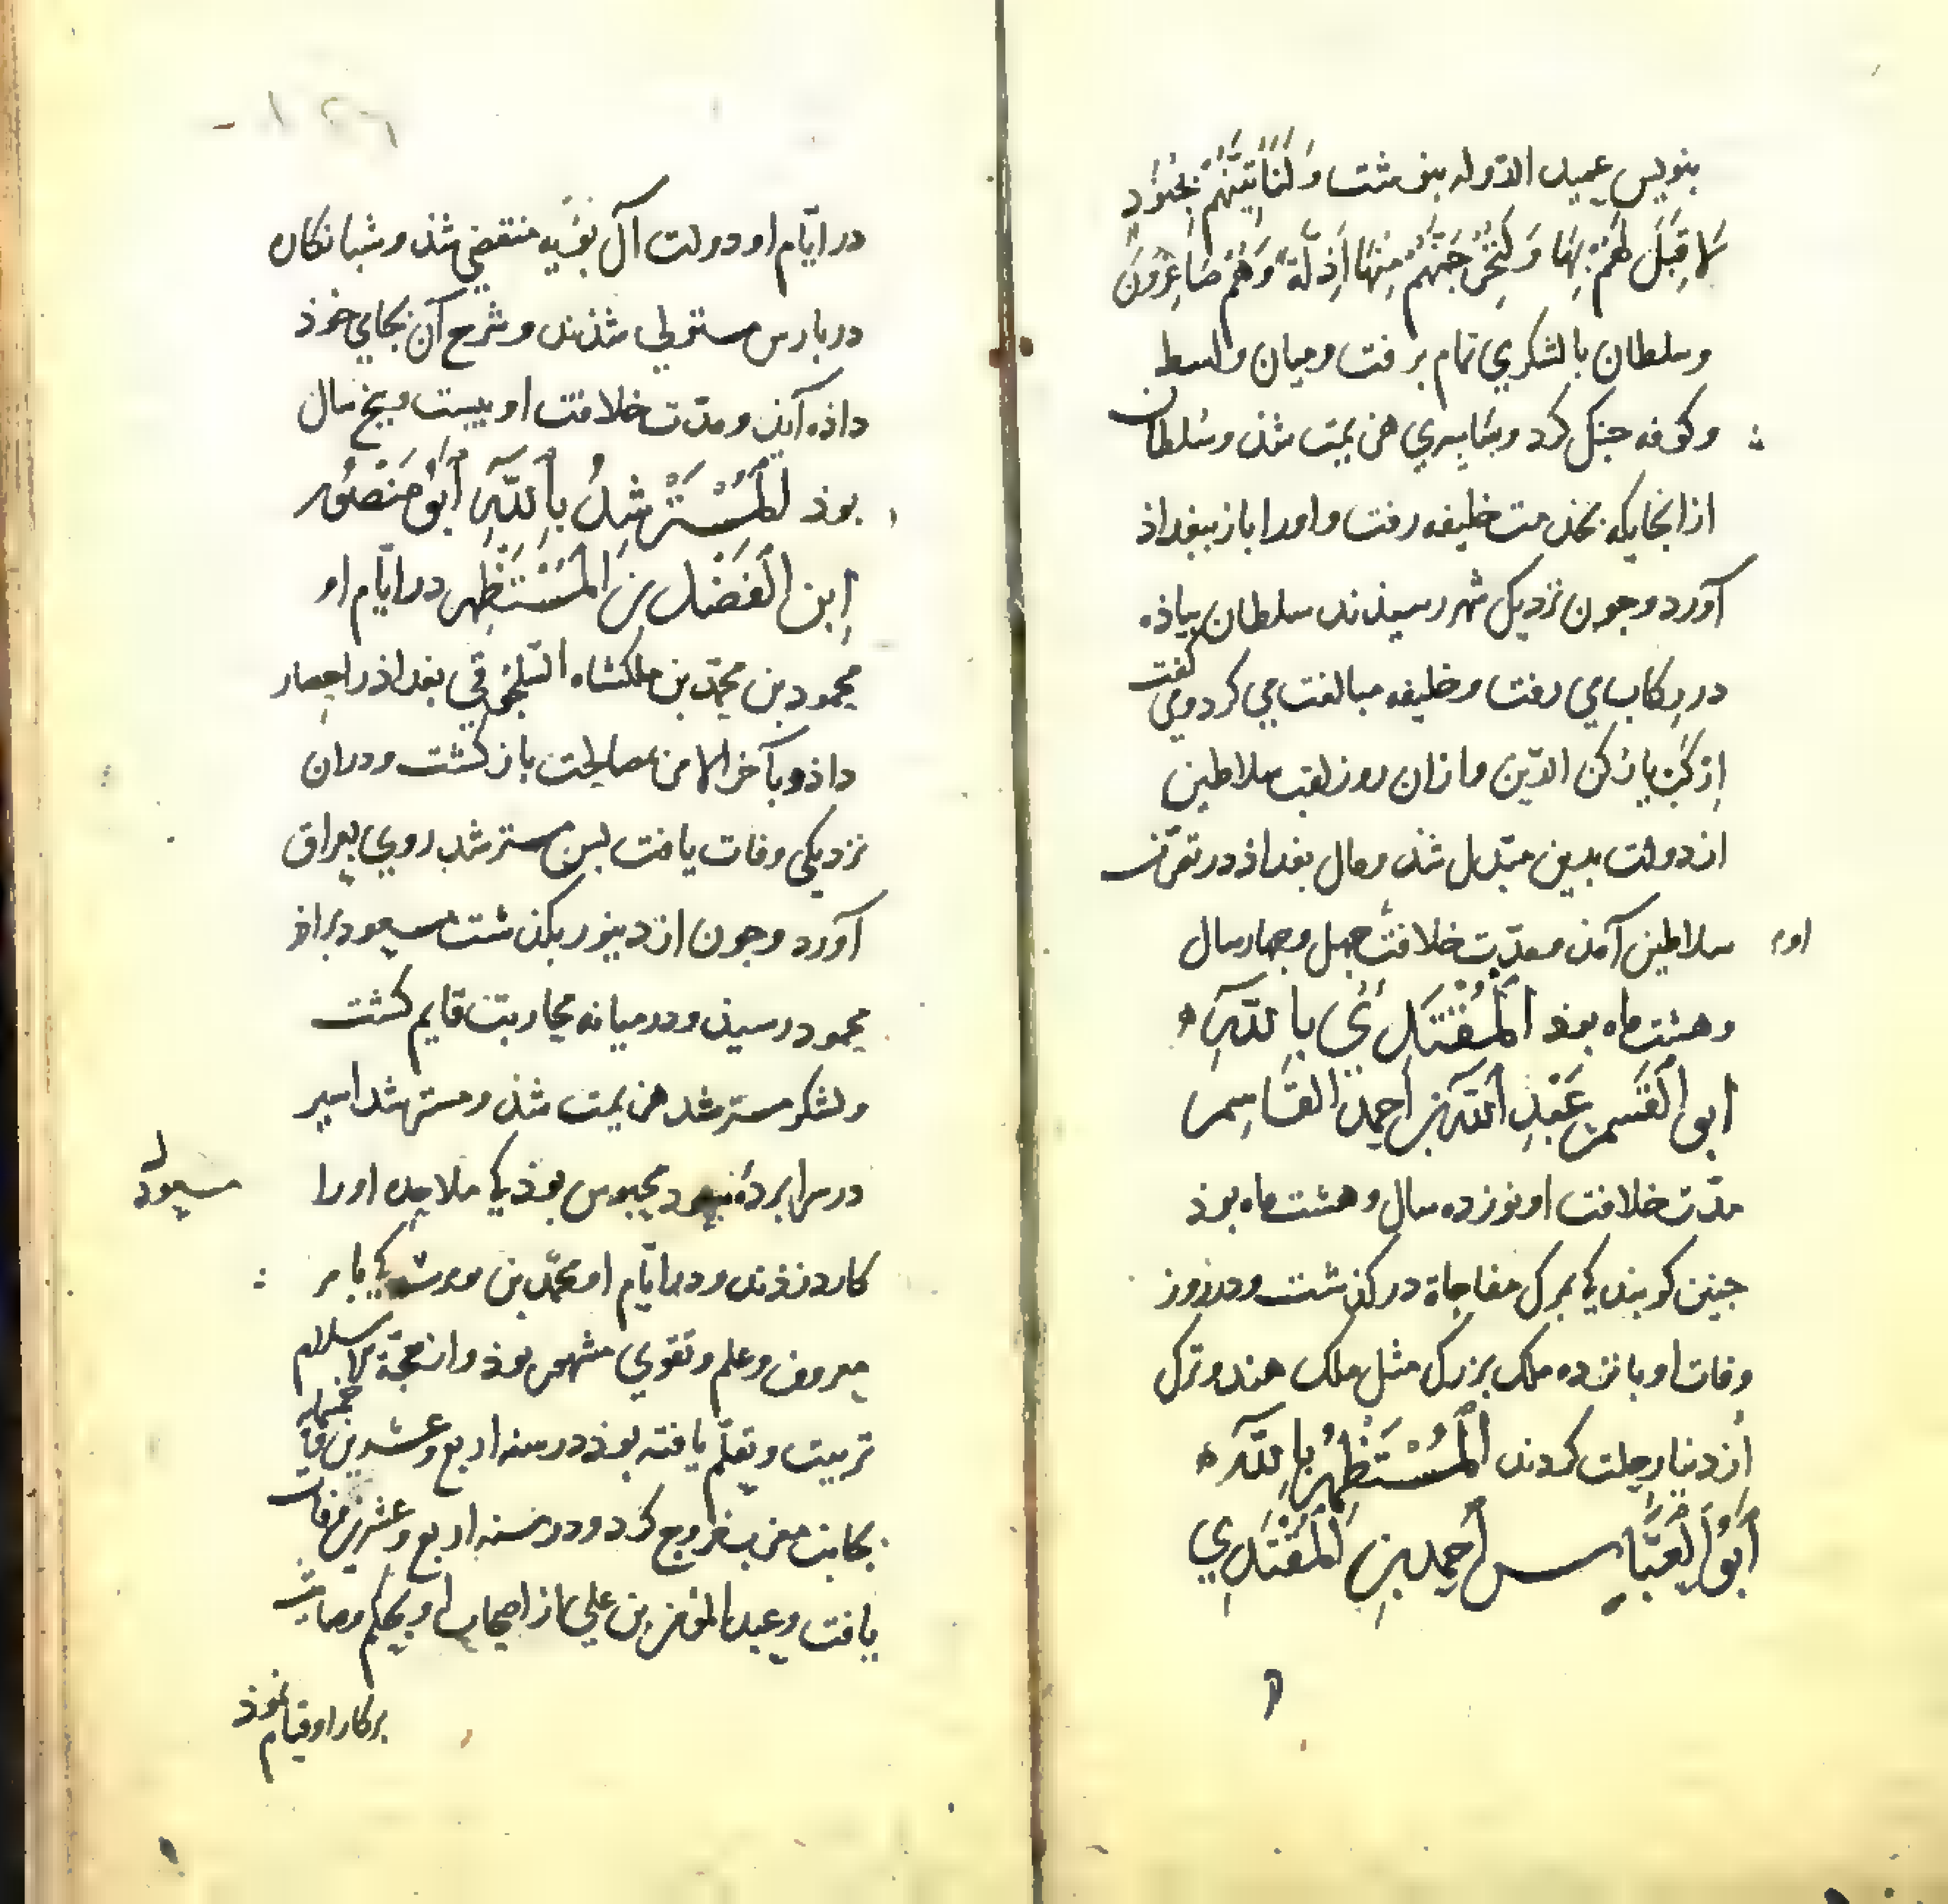 بنویس عمید الدوله بنوشت وَلَنَأْتِیَنَّهُمْ بِجُنُودٍ
لَا قِبَلَ لَهُمْ بِهَا وَلَنُخْرِجَنَّهُمْ مِنْهَا أَذِلَّةً وَهُمْ صَاغِرُونَ
وسلطان بالشکری تمام برفت ومیان واسط
وکوفه جنک کرد وبساسیری هزیمت شذ وسلطان
ازانجایکه بخذمت خلیفه رفت واورا باز ببغداذ
آورد وجون نزدیک شهر رسیذند سلطان بیاذه
در رکاب می رفت وخلیفه مبالغت می کرد ومی کفت
اِرْکَبْ یا رُکن الدّین وازان روز لقب سلاطین
از دولت بدین مبتدل شذ ومال بغداذ در تصرّف
سلاطین آمذ ومدّت خلافت او جهل وجهار سال
وهشت ماه بوذ اَلْمُقْتَدِیُ بِاللّٰهِ
ابو القسم عَبْدِ اللّٰه بن احمد القاسم
مدّت خلافت او نوزده سال وهشت ماه بوذ
جنین کویند کی بمرک مفاجاة درکذشت ودر روز
وفات او بانزده ملک بزرک مثل ملک هند وترک
از دنیا رحلت کردند اَلْمُسْتَظْهِرُ بِاللّٰه
أَبُو الْعَبَّاس أحمد بنِ الْمُقْتَدِي
در ایّام او دولت آل بُوَیه منقضی شذ وشبانکان
در بارس مستولی شذند وشرح آن بجای خوذ
داذه آیذ ومدّت خلافت او بیست وبنج سال
بوذ اَلْمُسْتَرْشِدُ بِاللّٰهِ أَبُو مَنْصُور
اِبن الْفَضْل بن الْمُسْتَظْهِر در ایّام او
محمود بن محمّد بن ملکشاه السّلجوقی بغداذ را حصار
داذ وبآخر الامر بمصالحت باز کشت ودران
نزدیکی وفات یافت بس مسترشد روی بعراق
آورد وجون از دینور بکذشت مسعود براذر
محمود رسیذ ودر میانه محاربت قایم کشت
ولشکر مسترشد هزیمت شذ ومسترشد اسیر
در سرابردهٔ مسعود محبوس بوذ کی ملاحده اورا
مسعود
کارد زذند ودر ایّام او محمّد بن تومرت کی بامر
معروف وعلم وتقوی مشهور بوذ واز حجّة الاسلام
تربیت وتعلّم یافته بوذ در سنه اربع وعشرین وخمسمایه
بجانب مغرب خروج کرد ودر سنه اربع وعشرین وفات
یافت وعبد المؤمن بن علی از اصحاب او بحکم وصایت
برکار او قیام نموذ